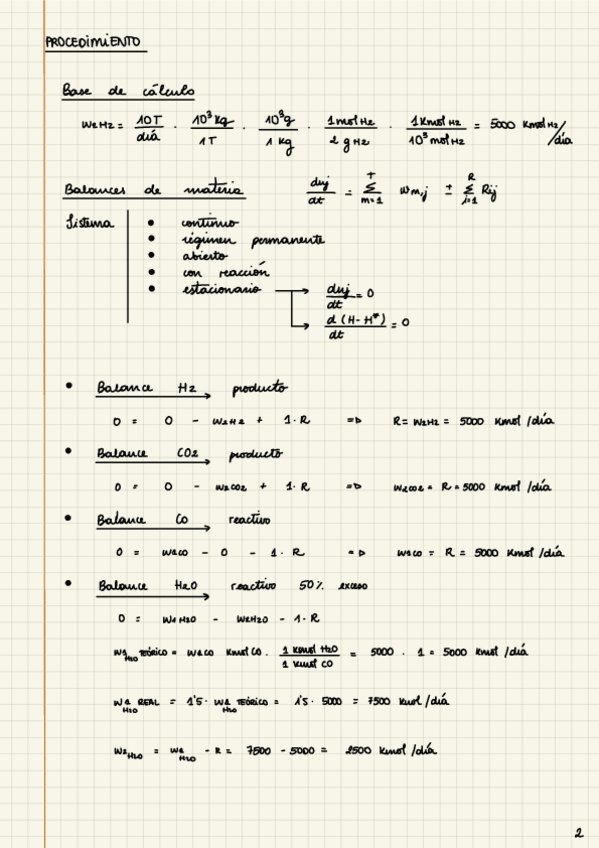 PROCEDIMIENTO
Base de cálculo
W2H2 = 10T/diá · 10³kg/1T · 10³g/1 kg · 1 mol H2/2 g H2 · 1 Kmol H2/10³ mol H2 = 5000 Kmol H2/día
Balances de materia dnj/dt = T Σ m=1 Wm,j ± R Σ i=1 Rij
Sistema • continuo
• régimen permanente
• abierto
• con reacción
• estacionario → dnj/dt = 0
→ d (H - H*)/dt = 0
• Balance H2 → producto
0 = 0 - W2H2 + 1·R => R = W2H2 = 5000 Kmol /día
• Balance CO2 → producto
0 = 0 - W2CO2 + 1·R => W2CO2 = R = 5000 Kmol /día
• Balance CO → reactivo
0 = W1CO - 0 - 1·R => W1CO = R = 5000 Kmol /día
• Balance H2O → reactivo 50% exceso
0 = W1H2O - W2H2O - 1·R
W1H2O TEÓRICO = W1CO Kmol CO · 1 Kmol H2O/1 Kmol CO = 5000 · 1 = 5000 Kmol /día
W1H2O REAL = 1'5 · W1H2O TEÓRICO = 1'5 · 5000 = 7500 Kmol /día
W2H2O = W1H2O - R = 7500 - 5000 = 2500 Kmol /día
2